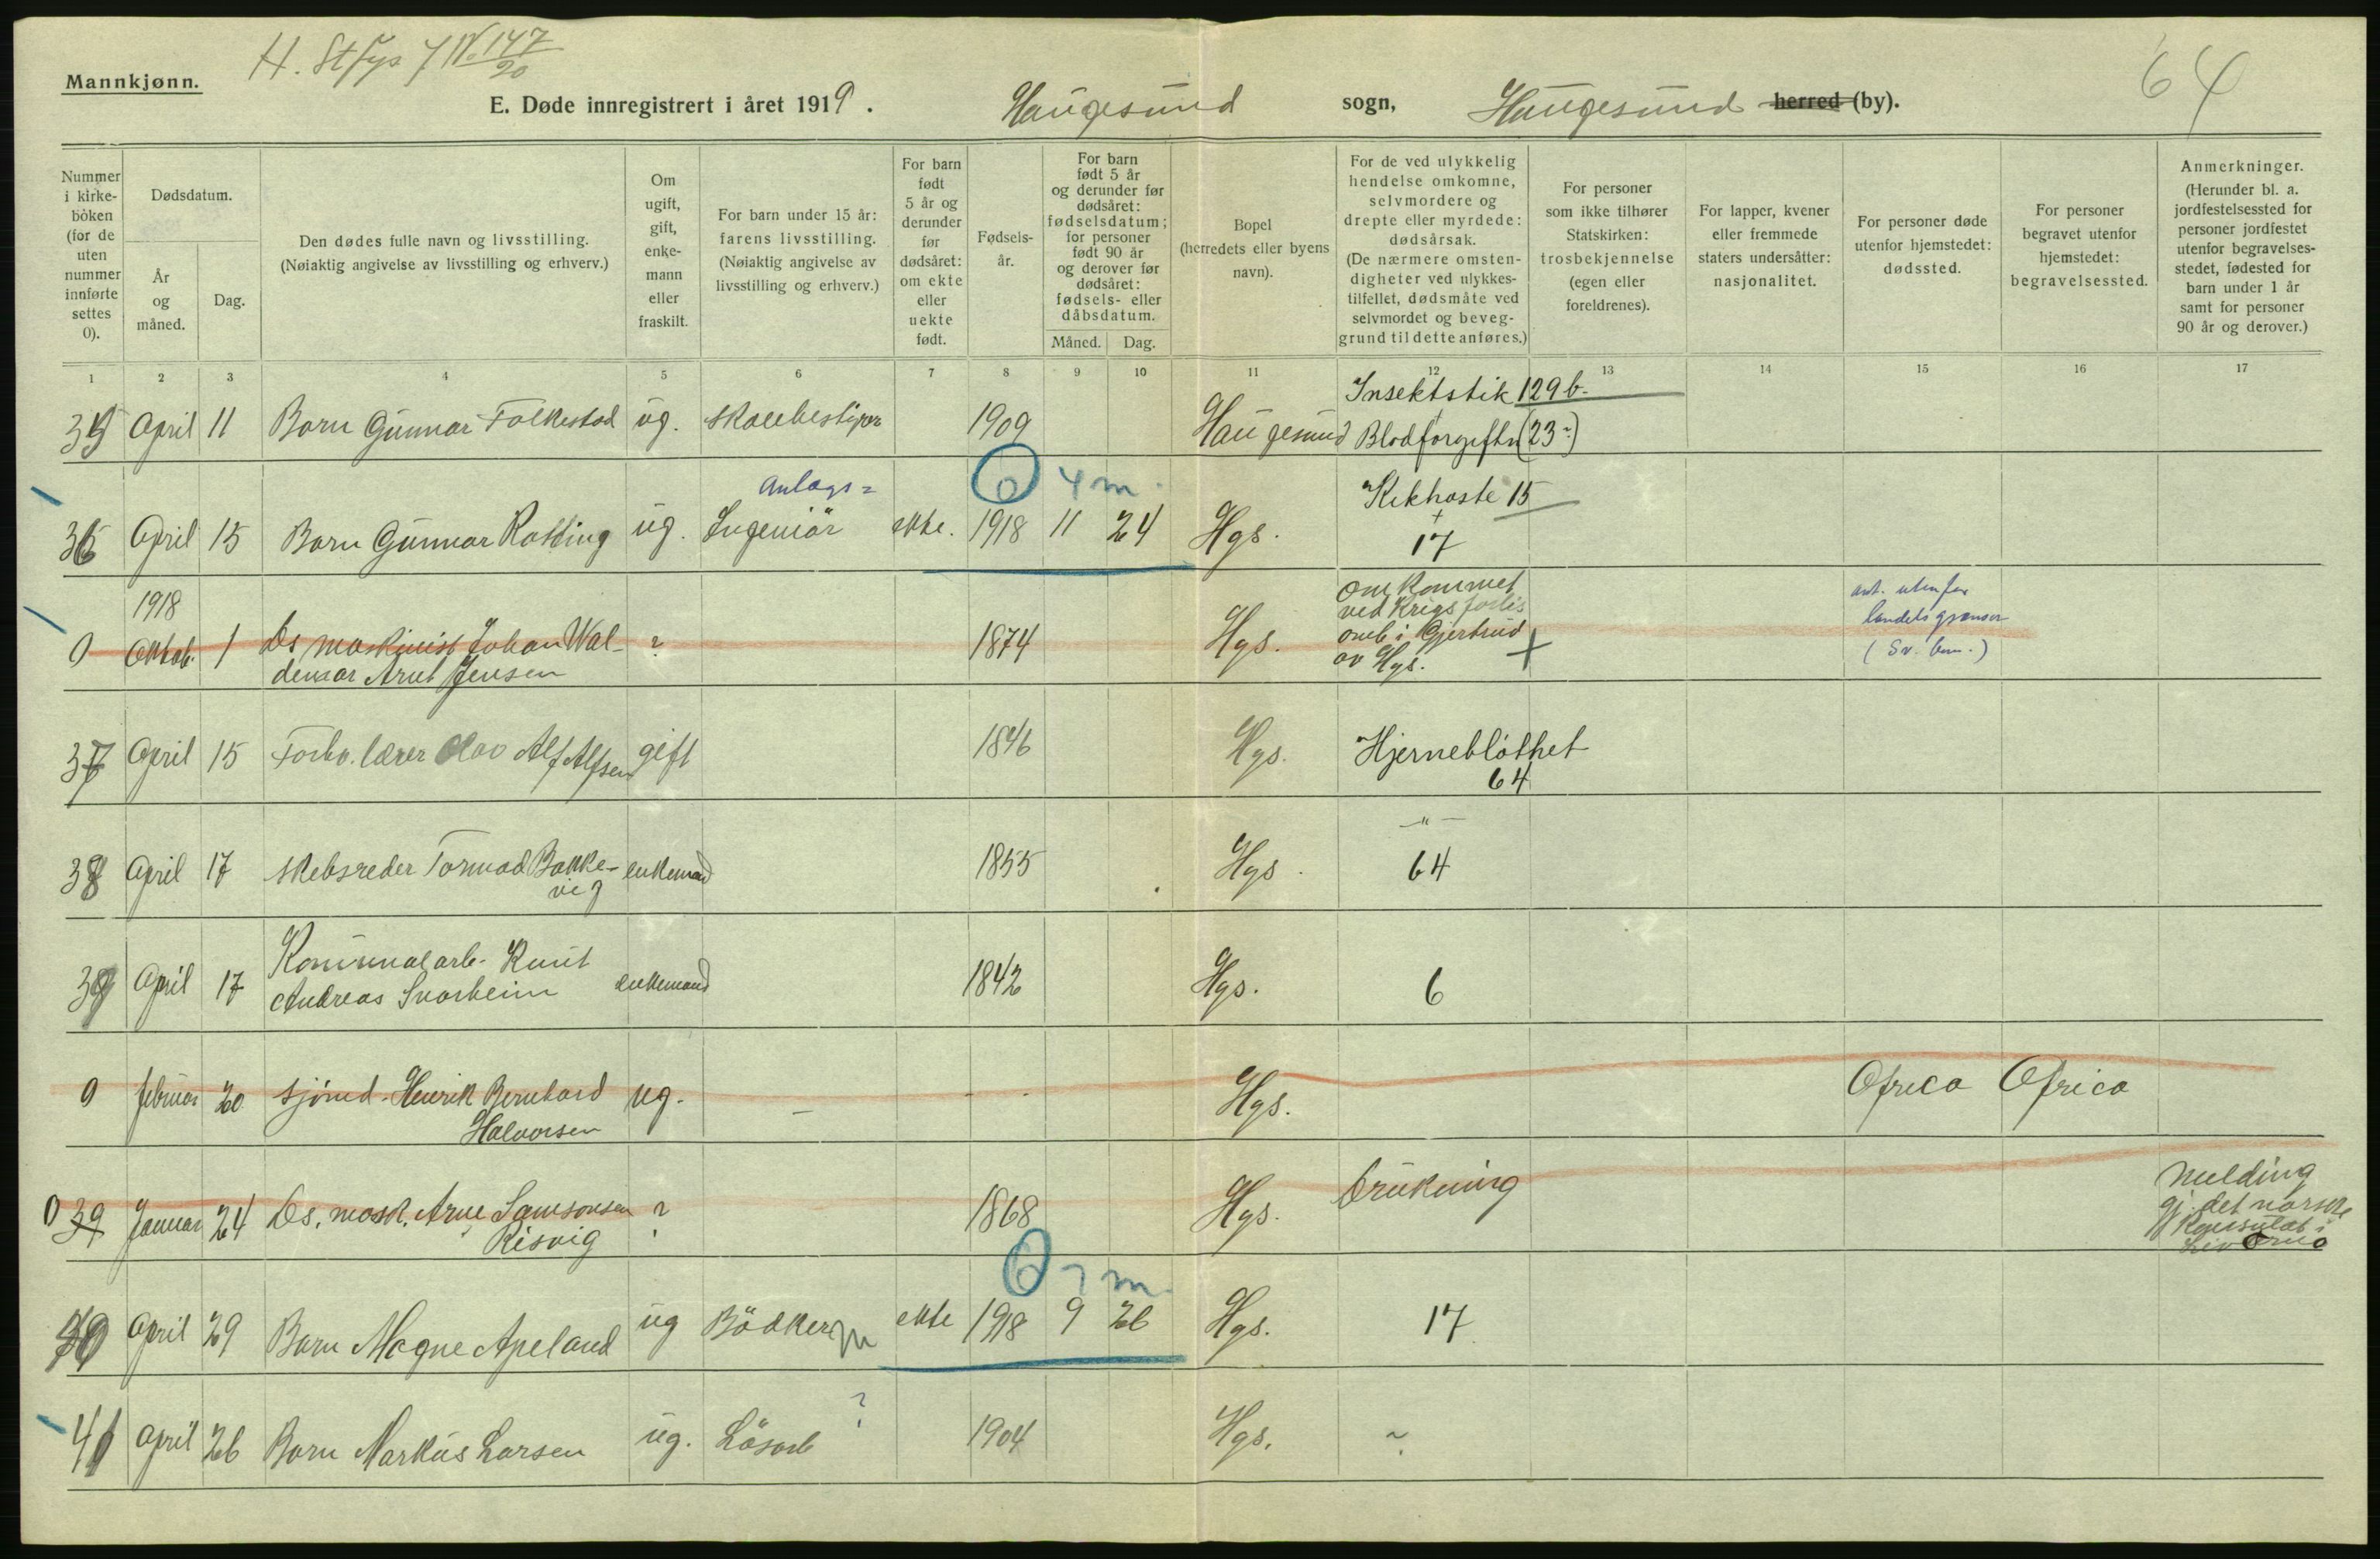 Mannkjønn.
H. St.fys J.N. 147/20
64
E. Døde innregistrert i året 1919. Haugesund sogn, Haugesund herred (by).
Nummer i kirke-bòken (for de uten nummer innførte settes 0).
Dødsdatum.
År og måned.
Dag.
Den dødes fulle navn og livsstilling. (Nøiaktig angivelse av livsstilling og erhverv.)
Om ugift, gift, enke-mann eller fraskilt.
For barn under 15 år: farens livsstilling. (Nøiaktig angivelse av livsstilling og erhverv.)
For barn født 5 år og derunder før dødsåret: om ekte eller uekte født.
Fødsels-år.
For barn født 5 år og derunder før dødsåret: fødselsdatum; for personer født 90 år og derover før dødsåret: fødsels- eller dåbsdatum.
Måned.
Dag.
Bopel (herredets eller byens navn).
For de ved ulykkelig hendelse omkomne, selvmordere og drepte eller myrdede: dødsårsak. (De nærmere omsten-digheter ved ulykkes-tilfellet, dødsmåte ved selvmordet og beveg-grund til dette anføres.)
For personer som ikke tilhører Statskirken: trosbekjennelse (egen eller foreldrenes).
For lapper, kvener eller fremmede staters undersåtter: nasjonalitet.
For personer døde utenfor hjemstedet: dødssted.
For personer begravet utenfor hjemstedet: begravelsessted.
Anmerkninger. (Herunder bl. a. jordfestelsessted for personer jordfestet utenfor begravelses-stedet, fødested for barn under 1 år samt for personer 90 år og derover.)
1 2 3 4 5 6 7 8 9 10 11 12 13 14 15 16 17
35 April 11 Barn Gunnar Folkestad ug. Skolebestyrer 1909 Haugesund Insektstik 129b. + Blodforgiftn (23?)
0 4 m.
36 April 15 Barn Gunnar Rasting ug. Anlægs= Ingeniör ekte. 1918 11 24 Hgs. Kikhoste 15 + 17
1918
0 Oktob. 1 Ds maskinist Johan Wal-demar Arnt Jensen ? 1874 Hgs. Omkommet ved Krigsforlis omb. i Gjertrud av Hgs. + ant. utenfor landets grænser (Sv. bem.)
37 April 15 Forhv. lærer Olav Alf Alfsen gift 1846 Hgs. Hjerneblöthet 64
38 April 17 Skibsreder Tormod Bakke-vig enkemand 1855 Hgs. —"— 64
39 April 17 Komunalarb. Knut Andreas Svasheim enkemand 1842 Hgs. 6
0 februar 20 Sjömd. Henrik Bernhard Halvorsen ug. - - - Hgs. Africa Africa
0 39 Januar 24 Ds. mask. Arne Samsonsen Risvig ? 1868 Hgs. Drukning Melding gj. det norske Konsulat i
0 7 m.
40 April 29 Barn Magne Apeland ug Bödker ekte 1918 9 26 Hgs. 17
41 April 26 Barn Markus Larsen ug. Lösarb ? 1904 Hgs. ?